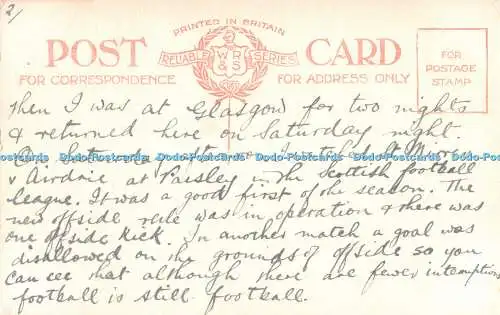 2/
PRINTED IN BRITAIN
POST CARD
RELIABLE WR&S SERIES
FOR CORRESPONDENCE
FOR ADDRESS ONLY
FOR
POSTAGE
STAMP
Then I was at Glasgow for two nights
& returned here on Saturday night.
On Saturday I watched St Mirren
Dodo-Postcards Dodo-Postcards Dodo-Postcards Dodo-Postcards Dodo-Postcards
v Airdrie at Paisley in the Scottish football
league. It was a good first of the season. The
new offside rule was in operation & there was
one offside kick. In another match a goal was
disallowed on the grounds of offside so you
can see that although there are fewer interruptions
football is still football.